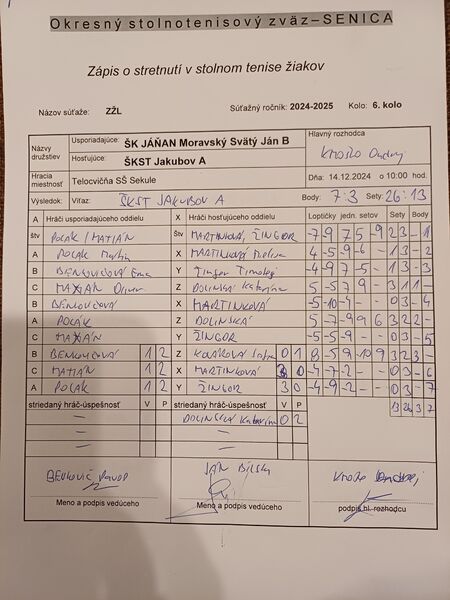 Okresný stolnotenisový zväz–SENICA
Zápis o stretnutí v stolnom tenise žiakov
Názov súťaže: ZŽL Súťažný ročník: 2024-2025 Kolo: 6. kolo
Názvy družstiev Usporiadajúce: ŠK JÁŇAN Moravský Svätý Ján B Hlavný rozhodca
Hosťujúce: ŠKST Jakubov A
Hracia miestnosť Telocvičňa SŠ Sekule Dňa: 14.12.2024 o 10:00 hod.
Výsledok: Víťaz: ŠKST JAKUBOV A Body: 7:3 Sety: 26:13
A Hráči usporiadajúceho oddielu X Hráči hosťujúceho oddielu Loptičky jedn. setov Sety Body
štv POLÁK / MATIÁN Štv MARTINKOVÁ, ŽINGOR -7 9 7 5 9 2 3 - 1
A POLÁK X MARTINKOVÁ 4 -5 -9 -6 - 1 3 - 2
B BENKOVIČOVÁ Ema Y -4 -9 7 -5 - 1 3 - 3
C Z DOLINSKÁ Katarína 5 -5 7 9 - 3 1 1 -
B BENKOVIČOVÁ X MARTINKOVÁ -5 -10 -4 - - 0 3 - 4
A POLÁK Z DOLINSKÁ 5 -7 -9 9 6 3 2 2 -
C Y ŽINGOR -5 -5 -9 - - 0 3 - 5
B BENKOVIČOVÁ 1 2 Z 0 1 8 -5 9 -10 9 3 2 3 -
C MATIÁN 1 2 X MARTINKOVÁ 3 0 -4 -7 -2 - - 0 3 - 6
A POLÁK 1 2 Y ŽINGOR 3 0 -4 -9 -2 - - 0 3 - 7
striedaný hráč-úspešnosť V P striedaný hráč-úspešnosť V P 13 26 3 7
DOLINSKÁ Katarína 0 2
BENKOVIČ JÁN
Meno a podpis vedúceho Meno a podpis vedúceho podpis hl. rozhodcu